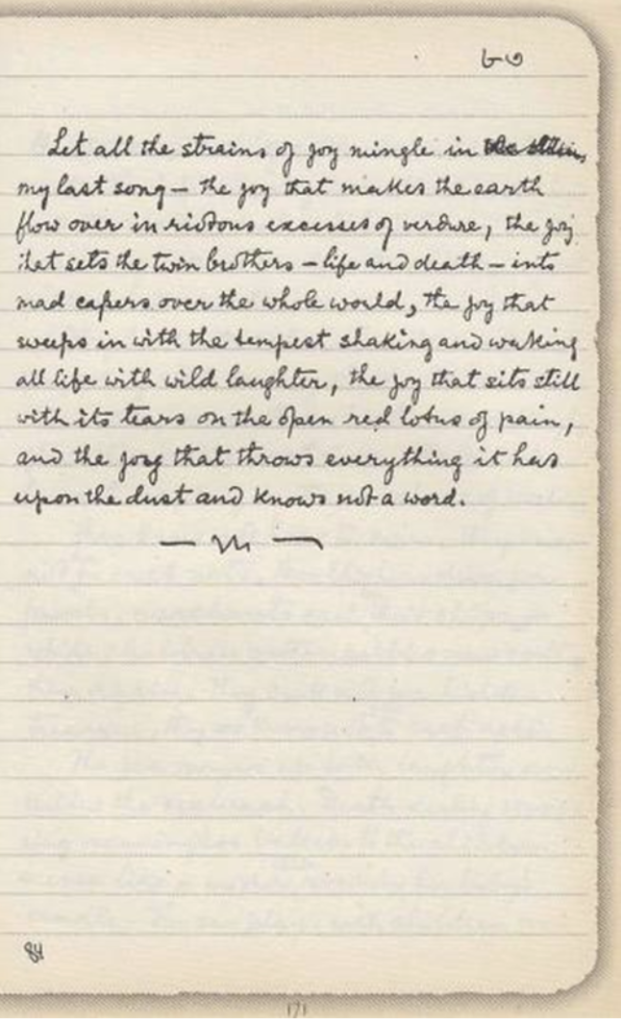 ৮৩
Let all the strains of joy mingle in
my last song — the joy that makes the earth
flow over in riotous excesses of verdure, the joy
that sets the twin brothers — life and death — into
mad capers over the whole world, the joy that
sweeps in with the tempest shaking and waking
all life with wild laughter, the joy that sits still
with its tears on the open red lotus of pain,
and the joy that throws everything it has
upon the dust and knows not a word.
84
171